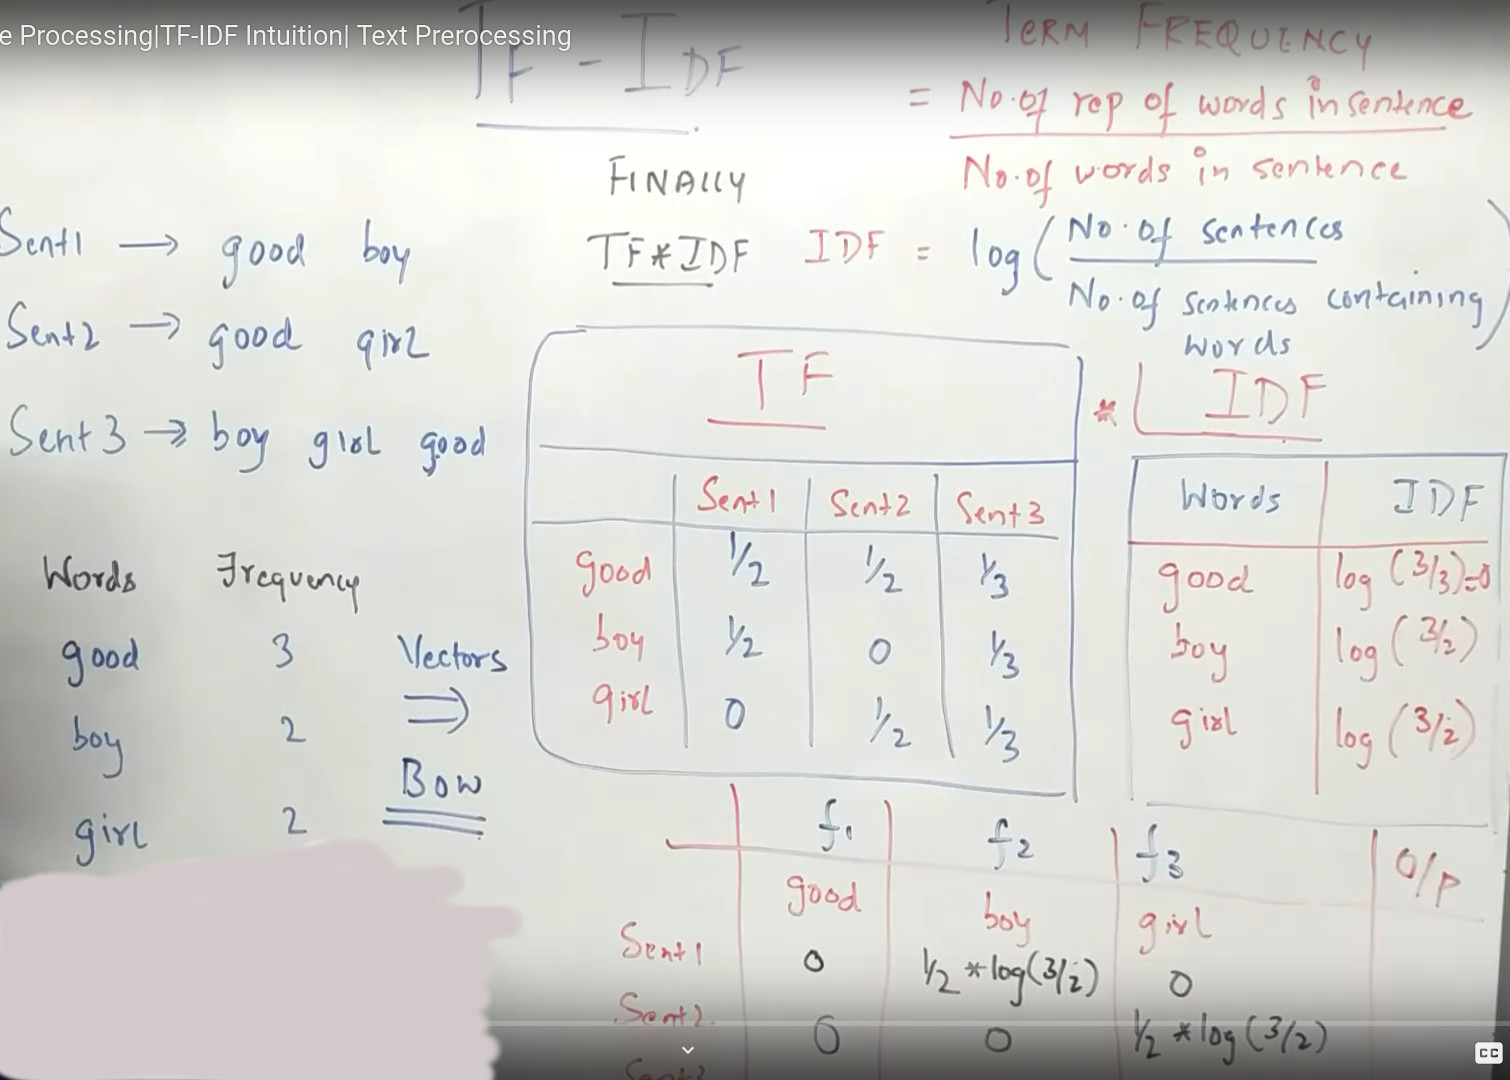 e Processing|TF-IDF Intuition| Text Prerocessing
TF - IDF
TERM FREQUENCY
= No.of rep of words in sentence
No.of words in sentence
FINALLY
TF*IDF
IDF = log( No.of sentences
No.of sentences containing
words )
Sent1 → good boy
Sent2 → good girl
Sent3 → boy girl good
Words Frequency
good 3
boy 2
girl 2
Vectors
⇒
BOW
TF
Sent1 Sent2 Sent3
good 1/2 1/2 1/3
boy 1/2 0 1/3
girl 0 1/2 1/3
* IDF
Words IDF
good log(3/3)=0
boy log(3/2)
girl log(3/2)
f1 f2 f3 O/P
good boy girl
Sent1 0 1/2*log(3/2) 0
Sent2 0 0 1/2*log(3/2)
Sent3
CC